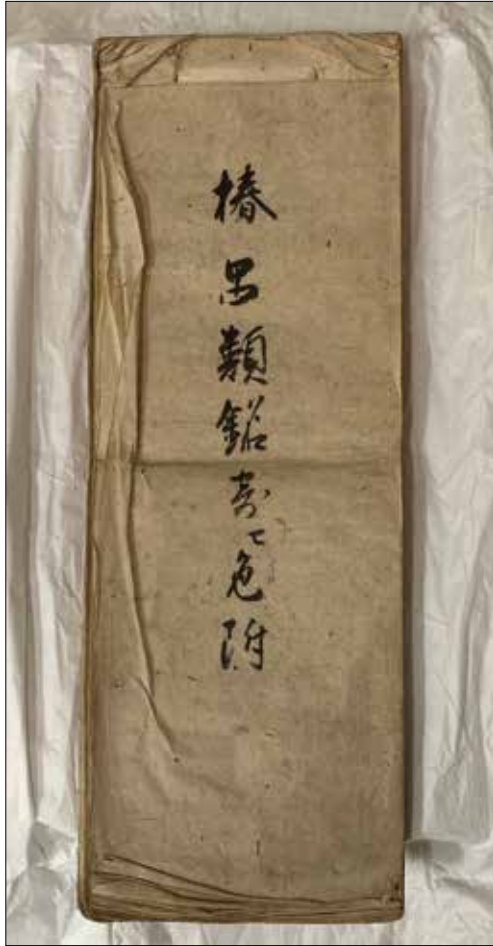 椿品類銘寄セ色附